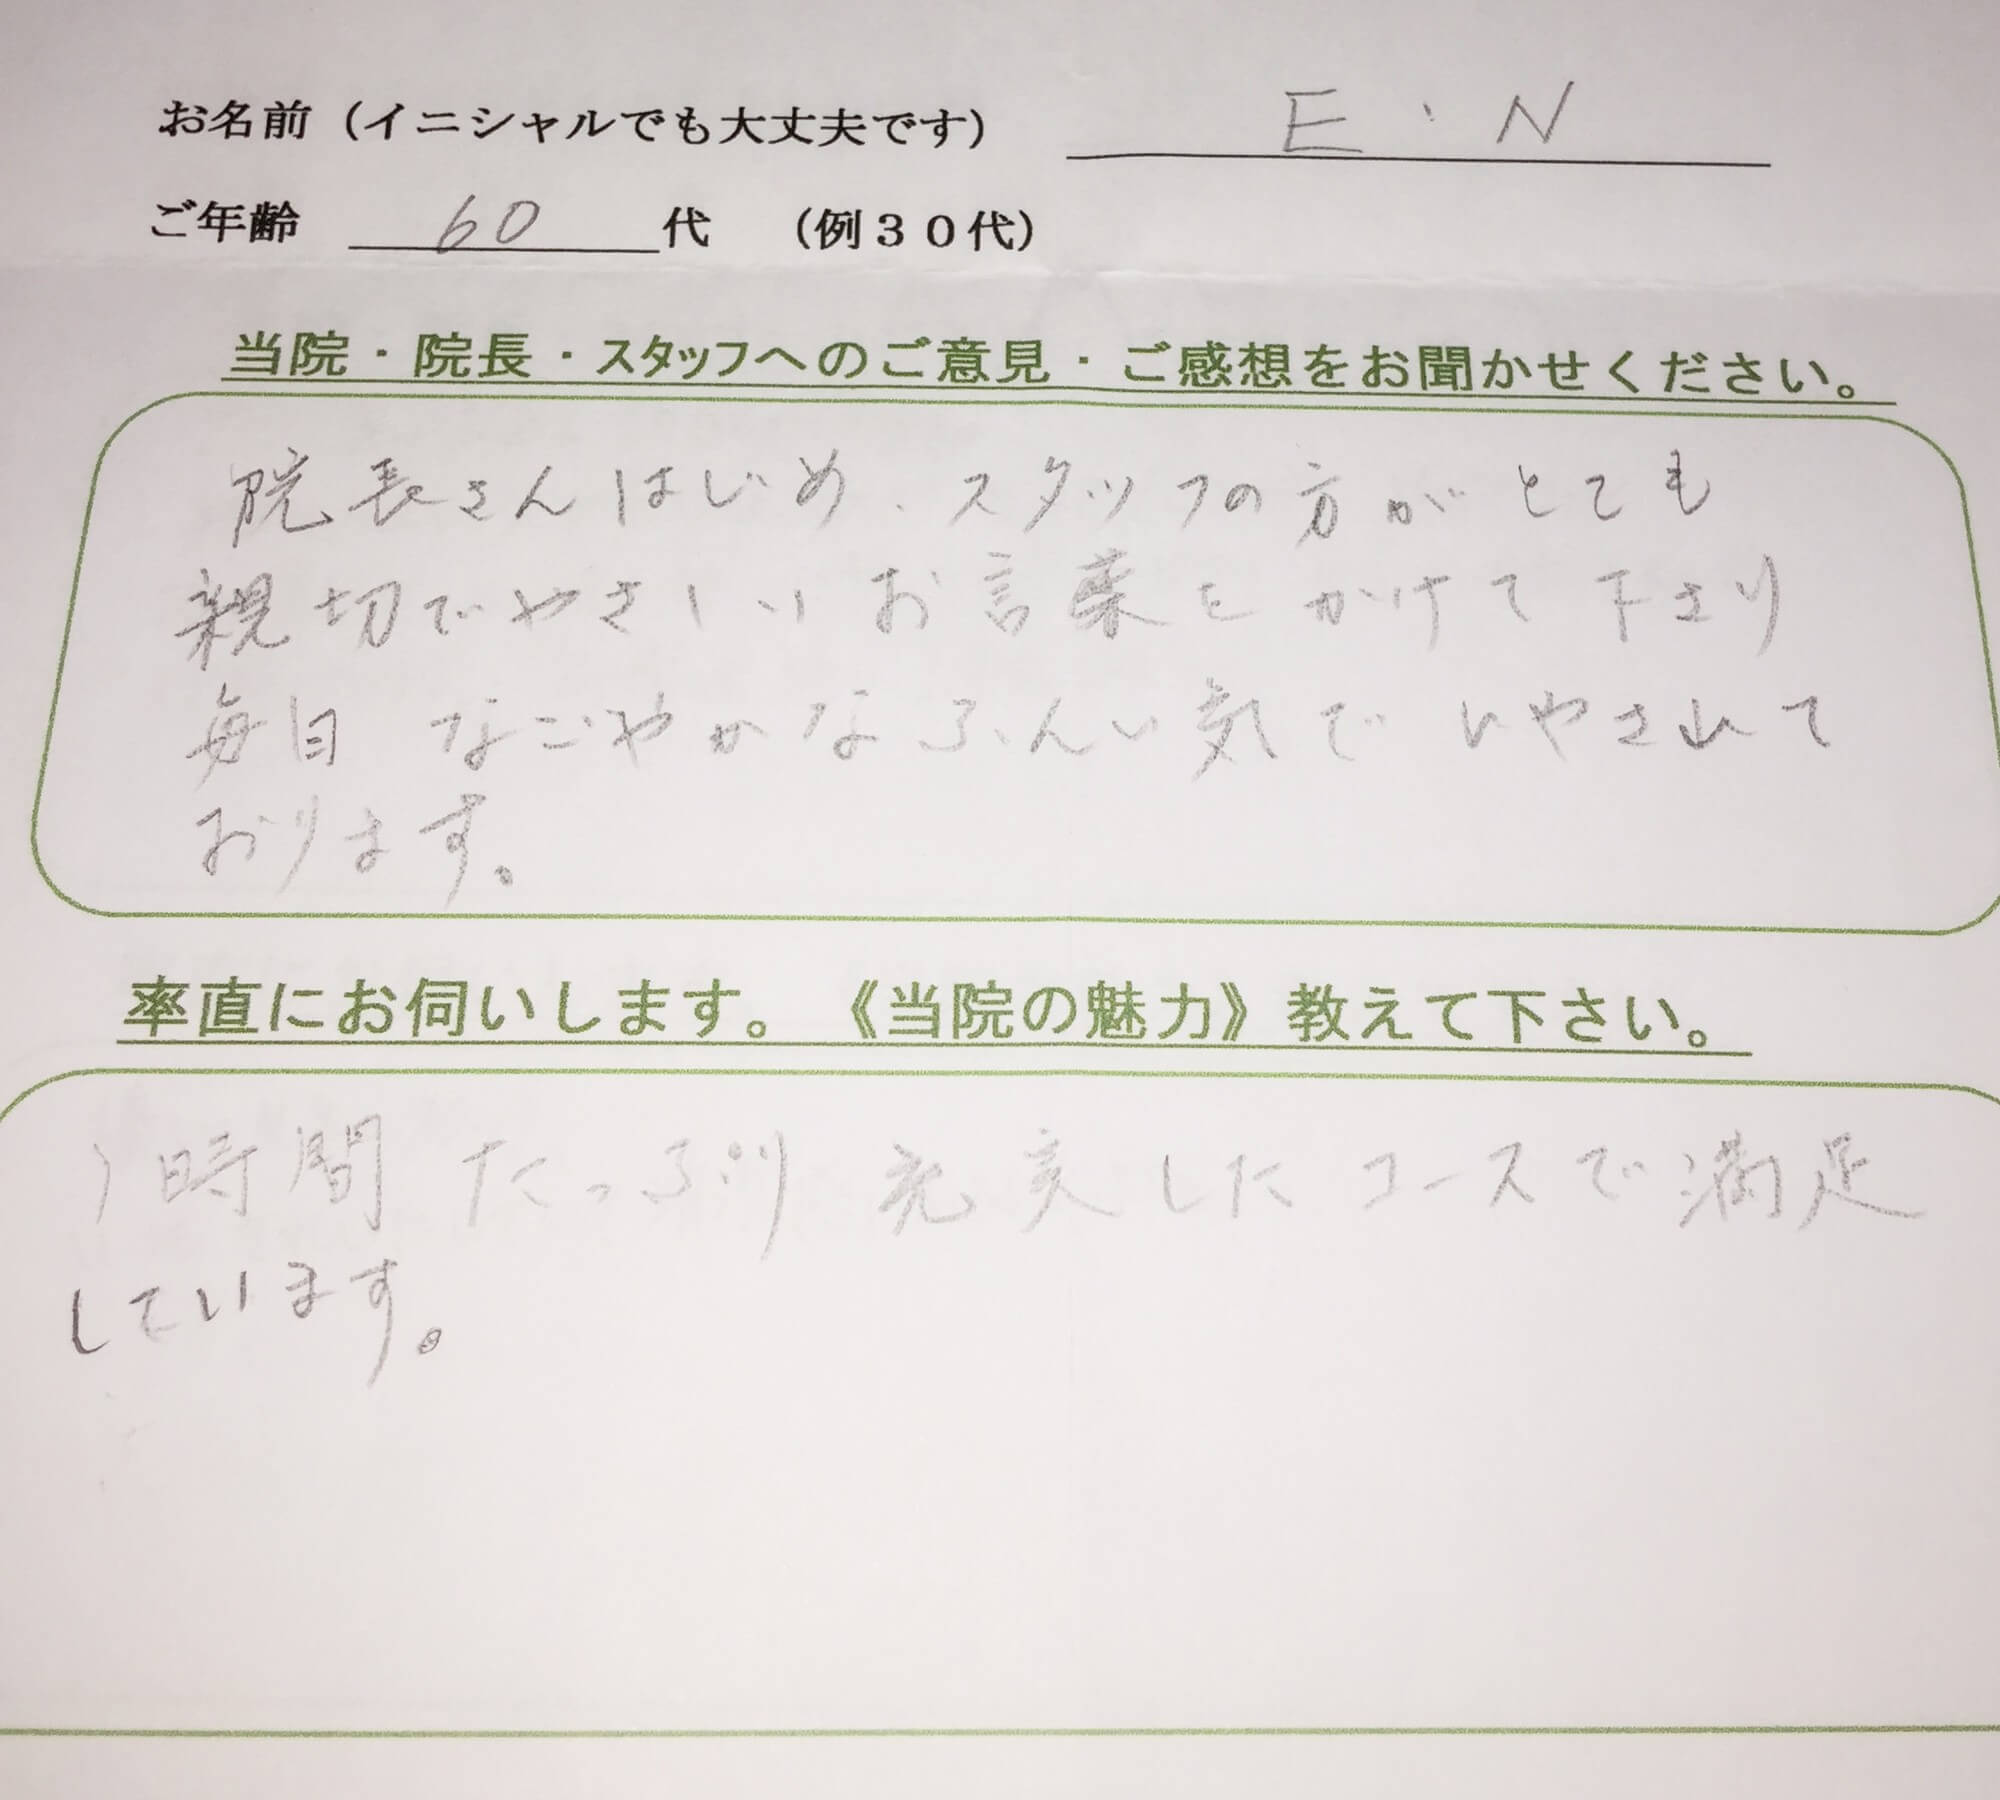 お名前（イニシャルでも大丈夫です） E・N
ご年齢 60 代 （例３０代）
当院・院長・スタッフへのご意見・ご感想をお聞かせください。
院長さんはじめ、スタッフの方がとても
親切でやさしいお言葉をかけて下さり
毎日 なごやかなふんい気で いやされて
おります。
率直にお伺いします。《当院の魅力》教えて下さい。
1時間 たっぷり 充実したコースで満足
しています。